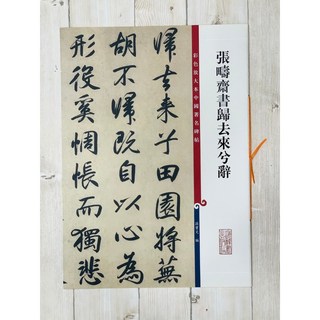 張疇齋書歸去來兮辭
彩色放大本中國著名碑帖
編
歸去来兮田園將蕪
胡不歸既自以心為
形役奚惆悵而獨悲